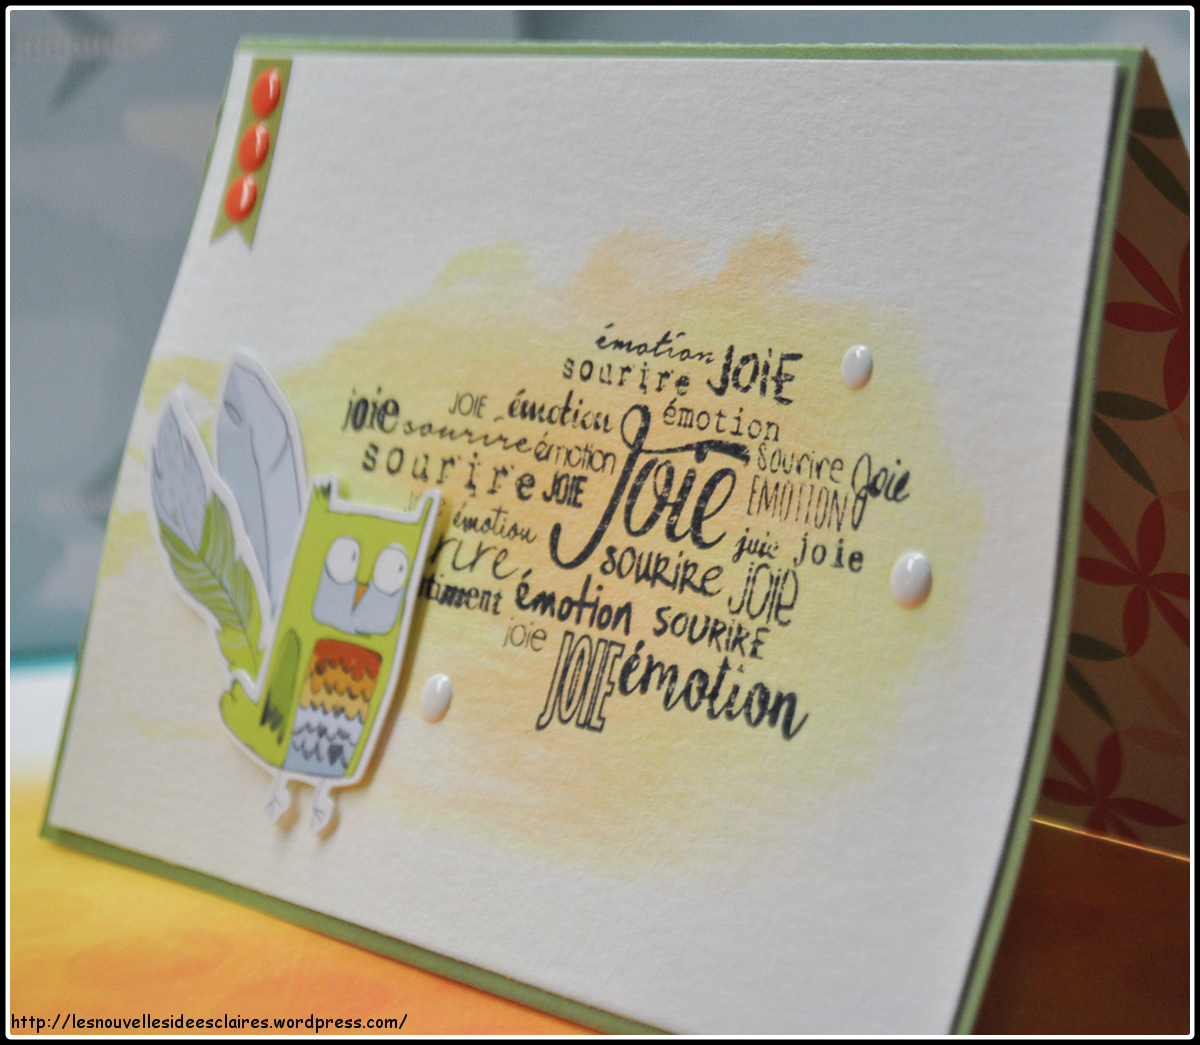 émotion
sourire JOIE
joie JOIE émotion émotion
sourire émotion Joie sourire Joie
sourire JOIE EMOTION
émotion juie joie
sourire JOIE
émotion SOURIRE
joie JOIE émotion
http://lesnouvellesideesclaires.wordpress.com/